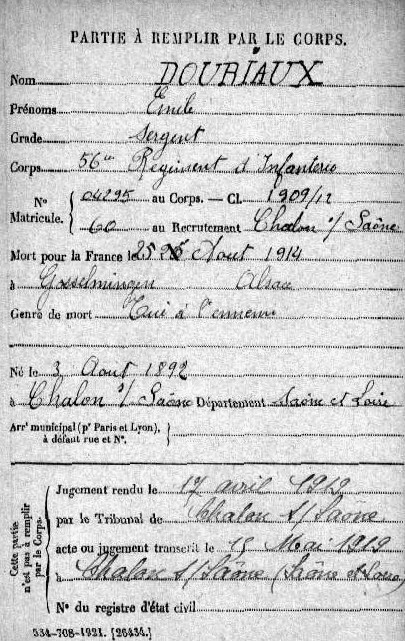 PARTIE À REMPLIR PAR LE CORPS.
Nom DOURIAUX
Prénoms Emile
Grade Sergent
Corps 56me Régiment d'Infanterie
Nº Matricule. { 04895 au Corps. — Cl. 1909/12
60 au Recrutement Chalon s/ Saône
Mort pour la France le 25 Aout 1914
à Gosselmingen Alsace
Genre de mort Tué à l'ennemi
Né le 3 Aout 1892
à Chalon s/ Saône Département Saône et Loire
Arrt municipal (pr Paris et Lyon), à défaut rue et Nº. {
Cette partie n'est pas à remplir par le Corps.
Jugement rendu le 17 avril 1919
par le Tribunal de Chalon s/ Saône
acte ou jugement transcrit le 15 Mai 1919
à Chalon s/ Saône (Saône et Loire)
Nº du registre d'état civil
534-708-1921. [26434.]